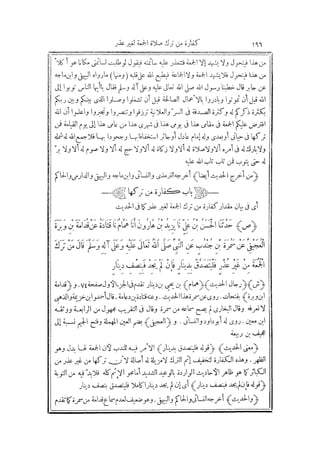 ١٩٦ كفارة من ترك صلاة الجمعة لغير عذر
من هذا فيتحول ولا يشهد إلا الجمعة فتتعذر عليه سائمته فيقول لو طلبت لسائمتى مكانا هو أكلأ
من هذا فيتحول فلا يشهد الجمعة ولا الجماعة فيطبع الله على قلبه (ومنها) ما رواه البيهقى وابن ماجه
عن جابر قال خطبنا رسول الله صلى الله تعالى عليه وعلى آله وسلم فقال يا أيها الناس توبوا إلى
الله قبل أن تموتوا وبادروا بالأعمال الصالحة قبل أن تشغلوا وصلوا الذى بينكم وبين ربكم
بكثرة ذكركم له وكثرة الصدقة فى السر والعلانية ترزقوا وتنصروا وتجبروا واعلموا أن الله
افترض عليكم الجمعة فى مقامى هذا فى يومى هذا فى شهرى هذا من عامى هذا إلى يوم القيامة فمن
تركها فى حياتى أو بعدى وله إمام عادل أو جائر استخفافا بها وجحودا بها فلا جمع الله له شمله
ولا بارك له فى أمره ألا ولا صلاة له ألا ولا زكاة له ألا ولا حج له ألا ولا صوم له ألا ولا بر
له حتى يتوب فمن تاب تاب الله عليه
﴿من أخرج الحديث أيضا﴾ أخرجه الترمذى والنسائى وابن ماجه والبيهقى والدارمى والحاكم
باب كفارة من تركها
أى فى بيان مقدار كفارة من ترك الجمعة لغير عذر كما فى الحديث
﴿ص﴾ حَدَّثَنَا الْحَسَنُ بْنُ عَلِيٍّ نَا يَزِيدُ بْنُ هَارُونَ أَنَا هَمَّامٌ نَا قَتَادَةُ عَنْ قُدَامَةَ بْنِ وَبَرَةَ
الْعُجَيْفِيِّ عَنْ سَمُرَةَ بْنِ جُنْدُبٍ عَنِ النَّبِيِّ صَلَّى اللهُ تَعَالَى عَلَيْهِ وَعَلَى آلِهِ وَسَلَّمَ قَالَ مَنْ تَرَكَ
الْجُمُعَةَ مِنْ غَيْرِ عُذْرٍ فَلْيَتَصَدَّقْ بِدِينَارٍ فَإِنْ لَمْ يَجِدْ فَبِنِصْفِ دِينَارٍ
﴿ش﴾ ﴿رجال الحديث﴾ ﴿همام﴾ بن يحيى بن دينار تقدم فى الجزء الأول صفحة ٧٤. و﴿قدامة
ابن وبرة﴾ بفتحات. روى عن سمرة هذا الحديث. وعنه قتادة بن دعامة. قال أحمد
لا نعرفه وقال البخارى لم يصح سماعه من سمرة وقال فى التقريب مجهول من الرابعة ووثقه
ابن معين. روى له أبو داود والنسائى. و﴿العجيفى﴾ بضم العين المهملة وفتح الجيم نسبة إلى
عجيف بن ربيعة
﴿معنى الحديث﴾ ﴿قوله فليتصدق بدينار﴾ الأمر فيه للندب لأن الجمعة لها بدل وهو
الظهر. وهذه الكفارة لتخفيف إثم الترك لا مزيلة له أصالة لأن ترك تركها من غير عذر من
الكبائر كما هو ظاهر الأحاديث الواردة بالوعيد الشديد أما محو الإثم كله فلا بد فيه من التوبة
﴿قوله فإن لم يجد فبنصف دينار﴾ أى إن لم يجد دينارا كاملا فليتصدق بنصف دينار
﴿والحديث﴾ أخرجه النسائى والحاكم والبيهقى. وهو ضعيف لعدم سماع قدامة من سمرة كما تقدم